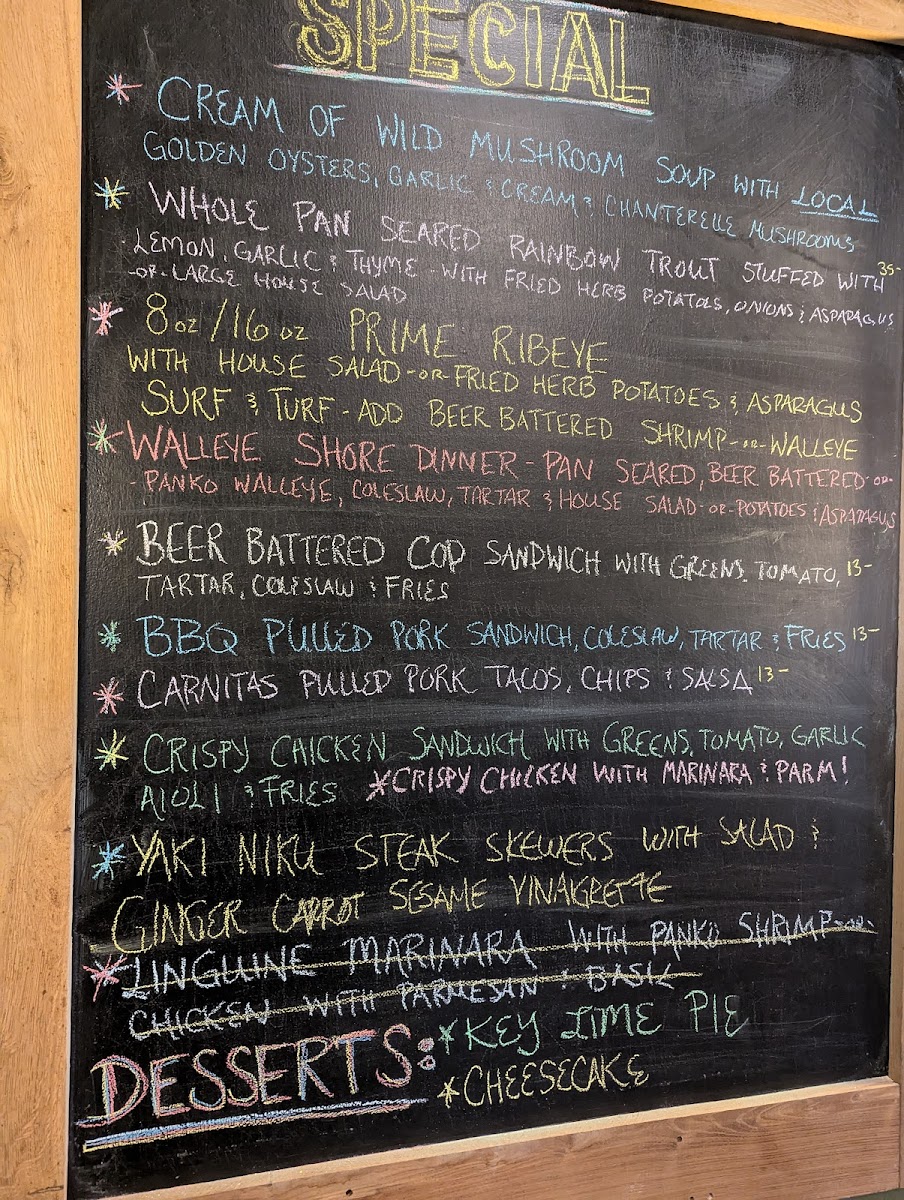 SPECIAL
* CREAM OF WILD MUSHROOM SOUP WITH LOCAL
GOLDEN OYSTERS, GARLIC & CREAM & CHANTERELLE MUSHROOMS
* WHOLE PAN SEARED RAINBOW TROUT STUFFED WITH 35-
LEMON, GARLIC & THYME - WITH FRIED HERB POTATOES, ONIONS & ASPARAGUS
-OR- LARGE HOUSE SALAD
* 8 OZ / 16 OZ PRIME RIBEYE
WITH HOUSE SALAD -OR- FRIED HERB POTATOES & ASPARAGUS
SURF & TURF - ADD BEER BATTERED SHRIMP -OR- WALLEYE
* WALLEYE SHORE DINNER - PAN SEARED, BEER BATTERED -OR-
- PANKO WALLEYE, COLESLAW, TARTAR & HOUSE SALAD -OR- POTATOES & ASPARAGUS
* BEER BATTERED COD SANDWICH WITH GREENS, TOMATO, 13-
TARTAR, COLESLAW & FRIES
* BBQ PULLED PORK SANDWICH, COLESLAW, TARTAR & FRIES 13-
* CARNITAS PULLED PORK TACOS, CHIPS & SALSA 13-
* CRISPY CHICKEN SANDWICH WITH GREENS, TOMATO, GARLIC
AIOLI & FRIES *CRISPY CHICKEN WITH MARINARA & PARM!
* YAKI NIKU STEAK SKEWERS WITH SALAD &
GINGER CARROT SESAME VINAIGRETTE
* LINGUINE MARINARA WITH PANKO SHRIMP -OR-
CHICKEN WITH PARMESAN & BASIL
DESSERTS: * KEY LIME PIE
* CHEESECAKE